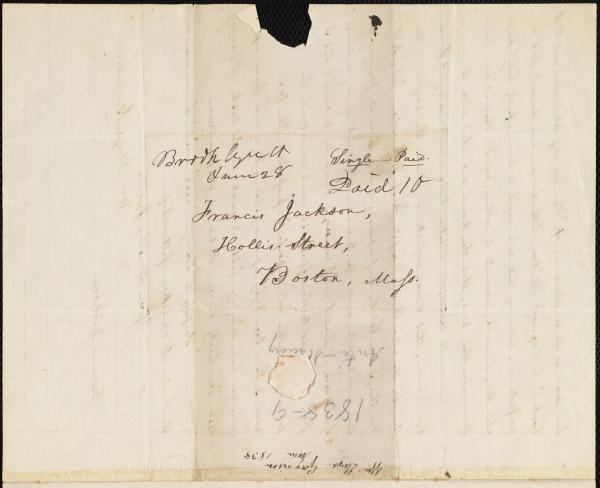 Brooklyn Ct
June 28
Single - Paid.
Paid 10
Francis Jackson,
Hollis Street,
Boston, Mass.
Anti-Slavery
1838-9
Wm Lloyd Garrison
1838